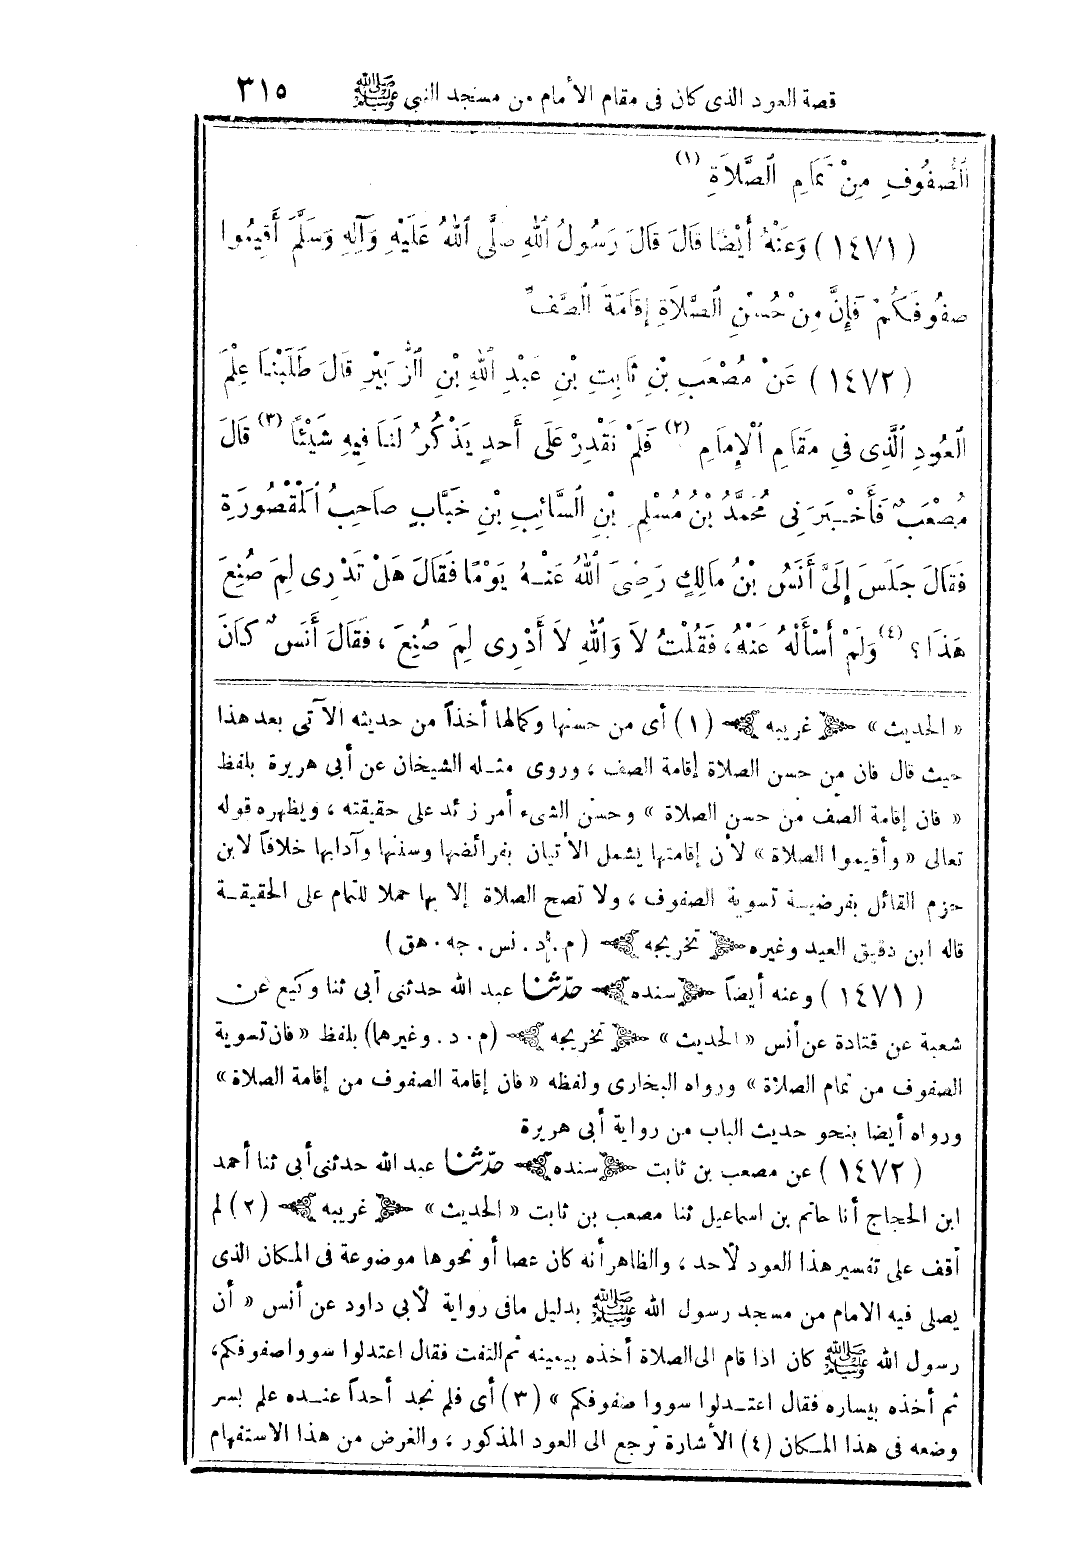 قصة العود الذى كان فى مقام الأمام من مسجد النبي ﷺ ٣١٥
ٱلصُّفُوفِ مِنْ تَمَامِ ٱلصَّلاَةِ (١)
(١٤٧١) وَعَنْهُ أَيْضًا قَالَ قَالَ رَسُولُ ٱللهِ صَلَّى ٱللهُ عَلَيْهِ وَآلِهِ وَسَلَّمَ أَقِيمُوا
صفُوفَكُمْ فَإِنَّ مِنْ حُسْنِ ٱلصَّلاَةِ إِقَامَةَ ٱلصَّفِّ
(١٤٧٢) عَنْ مُصْعَبِ بْنِ ثَابِتِ بْنِ عَبْدِ ٱللهِ بْنِ ٱلزُّبَيْرِ قَالَ طَلَبْنَا عِلْمَ
ٱلعُودِ ٱلَّذِى فِي مَقَامِ ٱلْإِمَامِ (٢) فَلَمْ نَقْدِرْ عَلَى أَحدٍ يَذْكُرُ لَنَا فِيهِ شَيْئًا (٣) قَالَ
مُصْعَبٌ فَأَخْبَرَنِى مُحَمَّدُ بْنُ مُسْلِمِ بْنِ ٱلسَّائِبِ بْنِ خَبَّابٍ صَاحِبُ ٱلْمَقْصُورَةِ
فَقَالَ جَلَسَ إِلَىَّ أَنَسُ بْنُ مَالِكٍ رَضِىَ ٱللهُ عَنْهُ يَوْمًا فَقَالَ هَلْ تَدْرِى لِمَ صُنِعَ
هَذَا؟ (٤) وَلَمْ أَسْأَلْهُ عَنْهُ، فَقُلْتُ لاَ وَاللهِ لاَ أَدْرِى لِمَ صُنِعَ ، فَقَالَ أَنَسٌ كَانَ
« الحديث » ﴿ غريبه ﴾ (١) أى من حسنها وكمالها أخذاً من حديثه الآتى بعد هذا
حيث قال فان من حسن الصلاة إقامة الصف ، وروى مثله الشيخان عن أبى هريرة بلفظ
« فان إقامة الصف من حسن الصلاة » وحسن الشىء أمر زائد على حقيقته ، ويظهره قوله
تعالى « وأقيموا الصلاة » لأن إقامتها يشمل الأتيان بفرائضها وسننها وآدابها خلافاً لابن
حزم القائل بفرضية تسوية الصفوف ، ولا تصح الصلاة إلا بها حملا للتمام على الحقيقة
قاله ابن دقيق العيد وغيره ﴿ تخريجه ﴾ (م . د . نس . جه . هق)
(١٤٧١) وعنه أيضاً ﴿ سنده ﴾ حدّثنا عبد الله حدثنى أبى ثنا وكيع عن
شعبة عن قتادة عن أنس « الحديث » ﴿ تخريجه ﴾ (م . د . وغيرهما) بلفظ « فان تسوية
الصفوف من تمام الصلاة » ورواه البخارى ولفظه « فان إقامة الصفوف من إقامة الصلاة »
ورواه أيضا بنحو حديث الباب من رواية أبى هريرة
(١٤٧٢) عن مصعب بن ثابت ﴿ سنده ﴾ حدّثنا عبد الله حدثنى أبى ثنا أحمد
ابن الحجاج أنا حاتم بن اسماعيل ثنا مصعب بن ثابت « الحديث » ﴿ غريبه ﴾ (٢) لم
أقف على تفسير هذا العود لأحد ، والظاهر أنه كان عصا أو نحوها موضوعة فى المكان الذى
يصلى فيه الامام من مسجد رسول الله ﷺ بدليل مافى رواية لأبى داود عن أنس « أن
رسول الله ﷺ كان اذا قام الى الصلاة أخذه بيمينه ثم التفت فقال اعتدلوا سووا صفوفكم ،
ثم أخذه بيساره فقال اعتدلوا سووا صفوفكم » (٣) أى فلم نجد أحداً عنده علم بسر
وضعه فى هذا المكان (٤) الأشارة ترجع الى العود المذكور ، والغرض من هذا الاستفهام